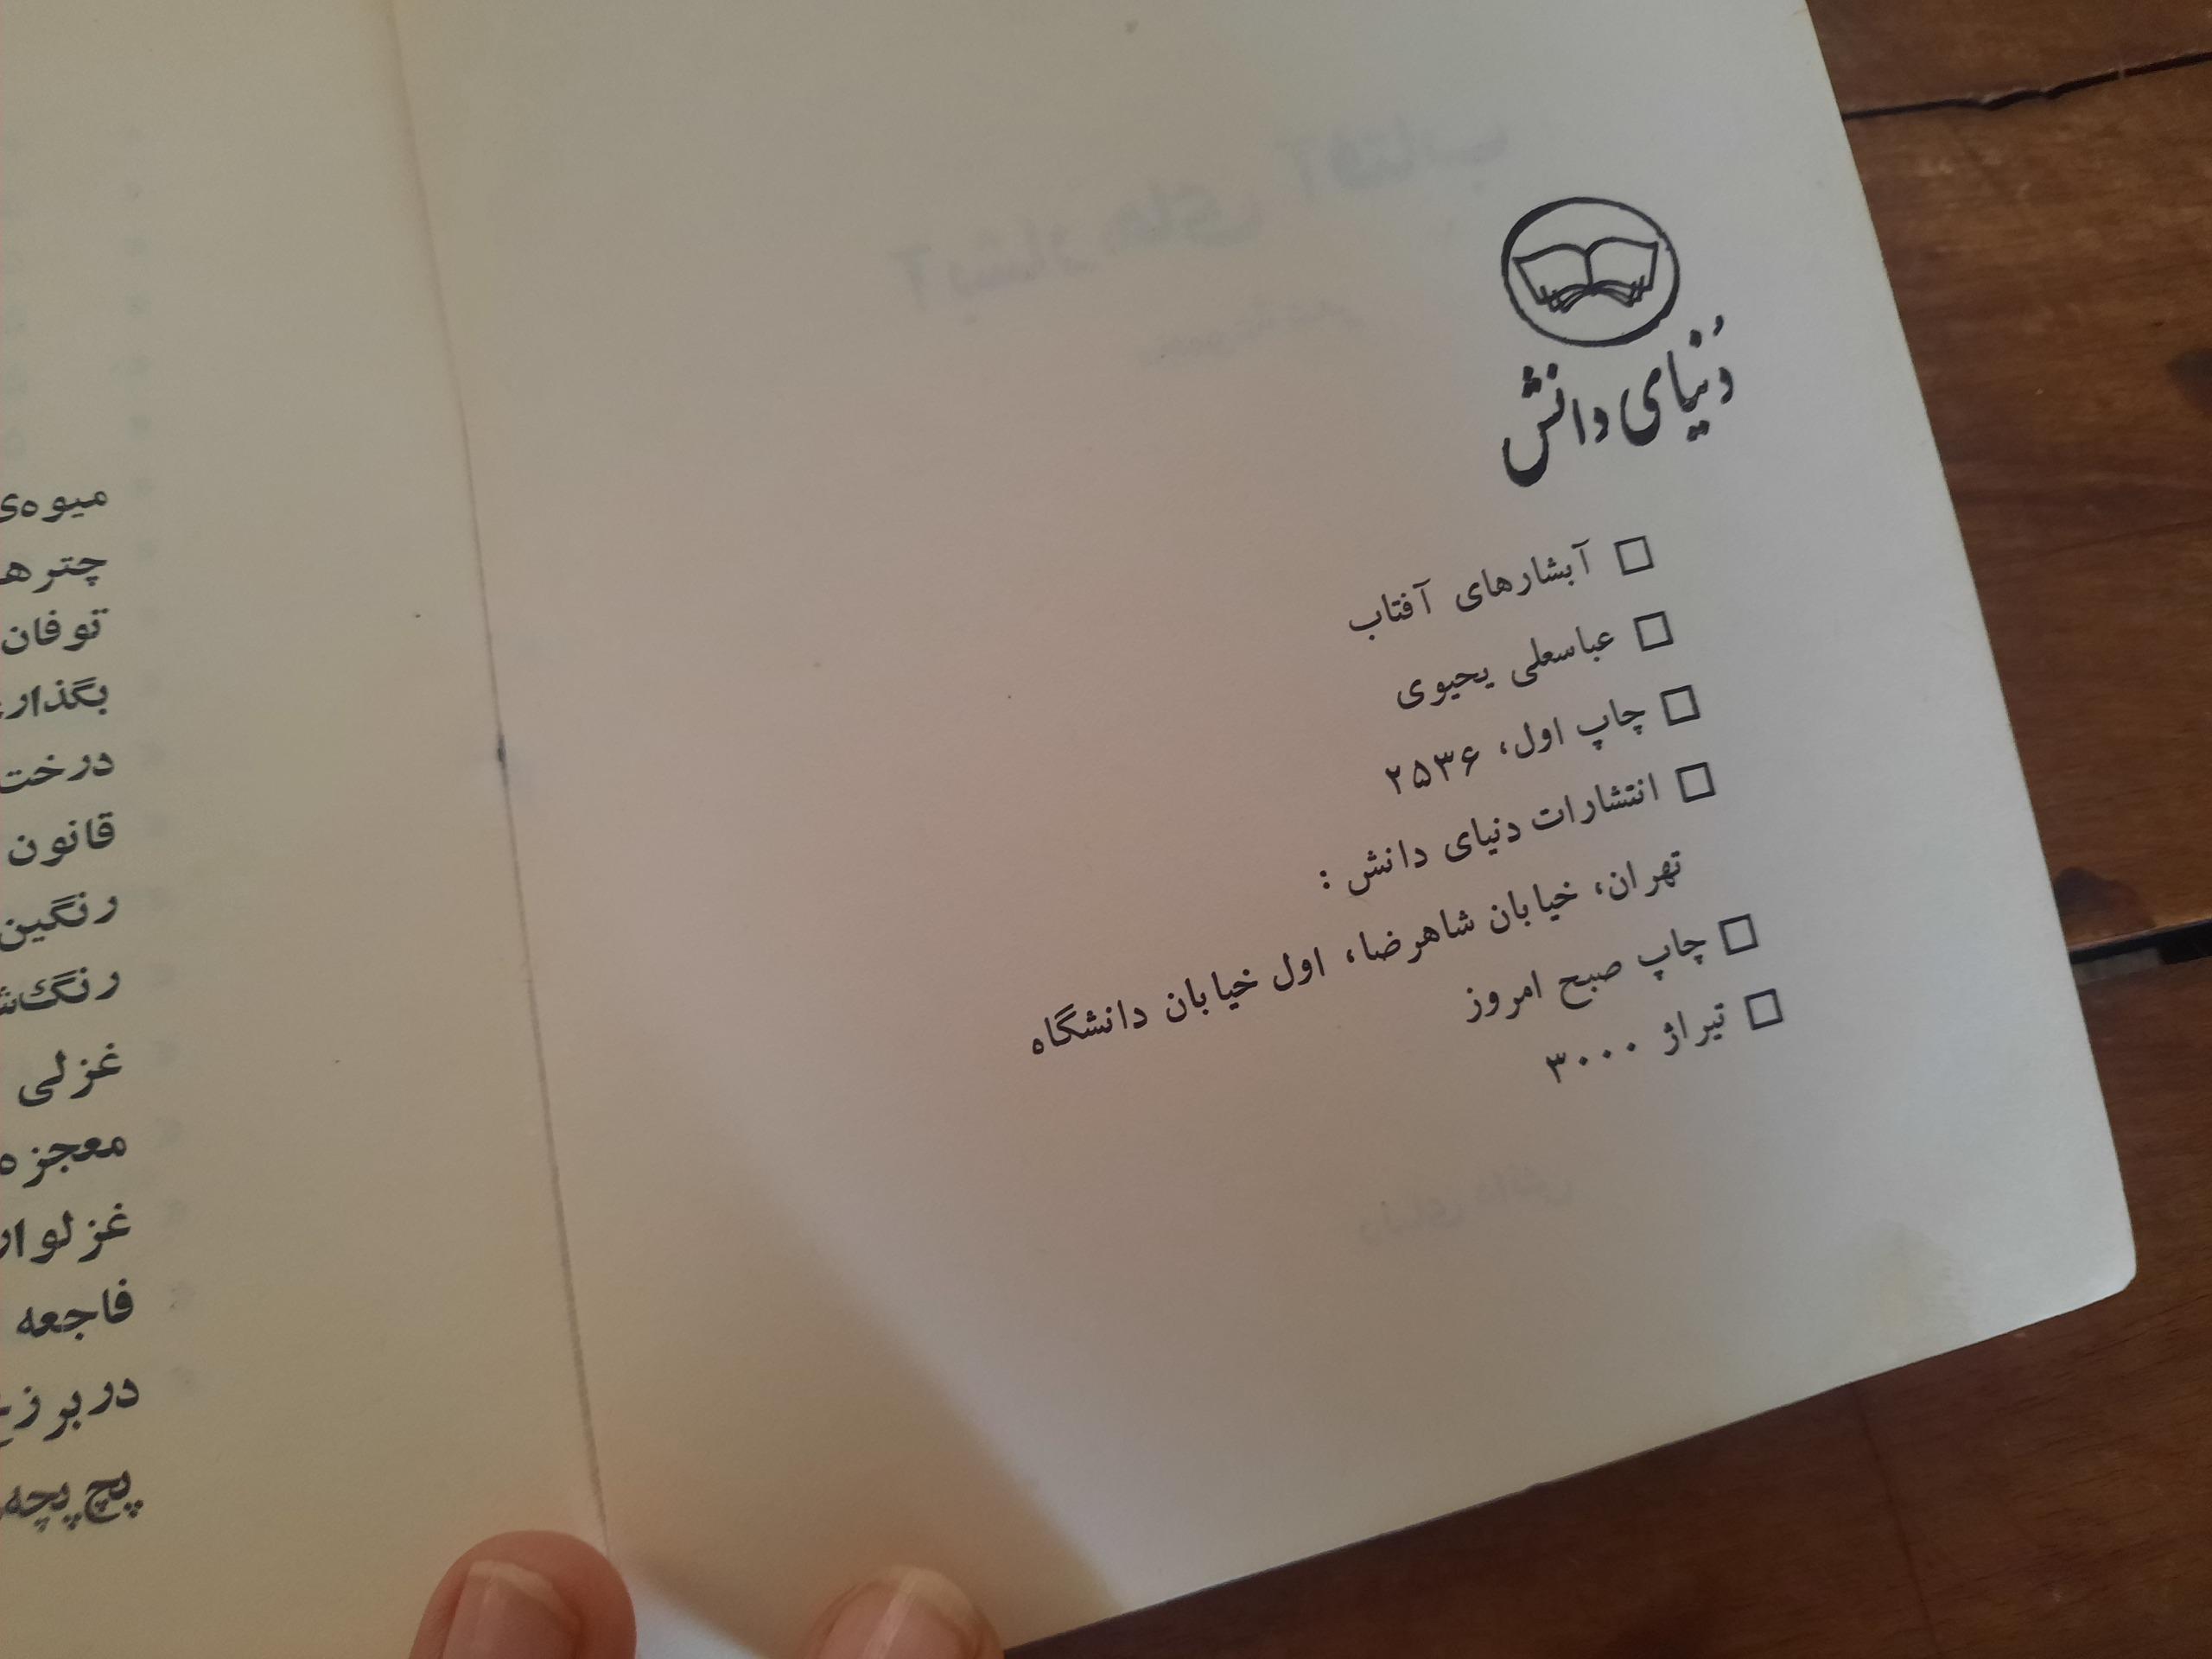 دُنیای دانش
□ آبشارهای آفتاب
□ عباسعلی یحیوی
□ چاپ اول، ۲۵۳۶
□ انتشارات دنیای دانش :
تهران، خیابان شاهرضا، اول خیابان دانشگاه
□ چاپ صبح امروز
□ تیراژ ۳۰۰۰
میوه‌ی
چترها
توفان
درخت
قانون
رنگین
غزلی
معجزه
فاجعه